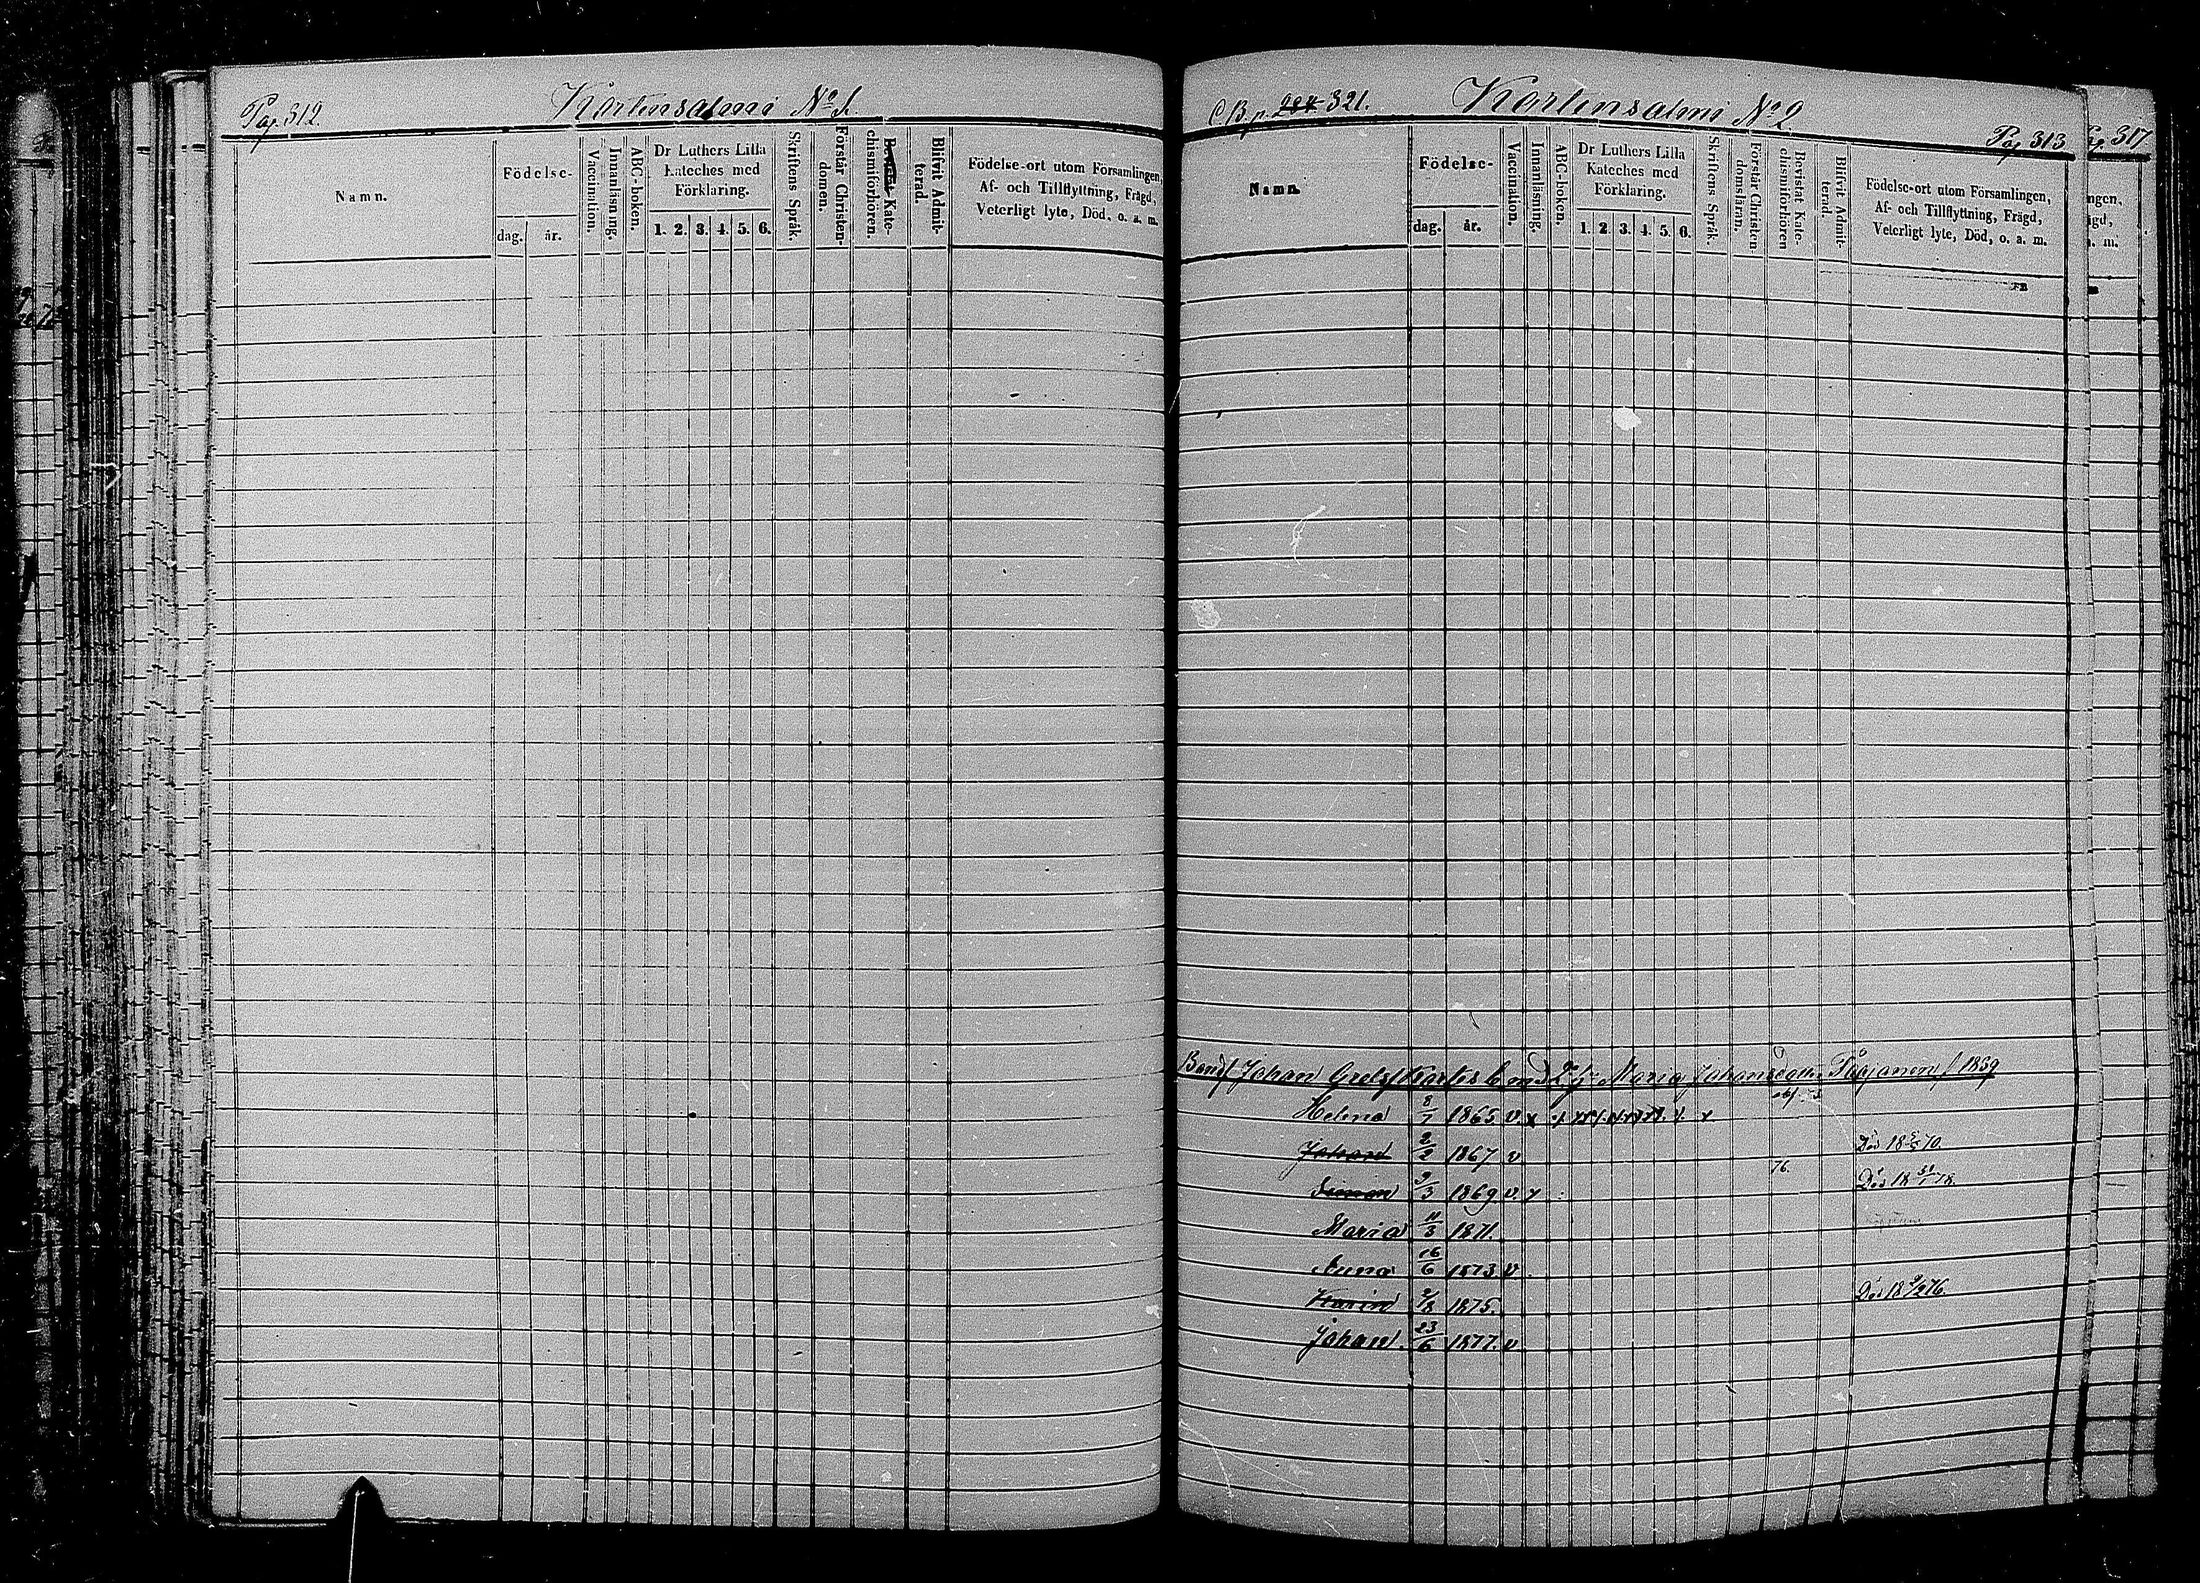 Pag. 312. Kortensalmi No 1.
Namn.
Födelse-
dag. år.
Vaccination.
Innanläsning.
ABC-boken.
Dr Luthers Lilla
Kateches med
Förklaring.
1. 2. 3. 4. 5. 6.
Skriftens Språk.
Förstår Christen-
domen.
Bevistat Kate-
chismiförhören.
Blifvit Admit-
terad.
Födelse-ort utom Församlingen,
Af- och Tillflyttning, Frägd,
Veterligt lyte, Död, o. a. m.
C.B.p. 321. Kortensalmi No 2
Pag. 313
Namn.
Födelse-
dag. år.
Vaccination.
Innanläsning.
ABC-boken.
Dr Luthers Lilla
Kateches med
Förklaring.
1. 2. 3. 4. 5. 6.
Skriftens Språk.
Förstår Christen-
domsläran.
Bevistat Kate-
chismiförhören
Blifvit Admit-
terad.
Födelse-ort utom Församlingen,
Af- och Tillflyttning, Frägd,
Veterligt lyte, Död, o. a. m.
Johan Maria Johansdotter f 1839
Helena 8/1 1865. v. x
Johan 2/2 1867. v Död 18 70.
76.
Simon 9/3 1869 v. x Död 18 31/1 78.
Maria 11/3 1871.
Anna 16/6 1873. v.
Karin 2/8 1875. Död 18 9/2 76.
Johan. 23/6 1877. v
Pag. 317
ngen,
ägd,
a. m.